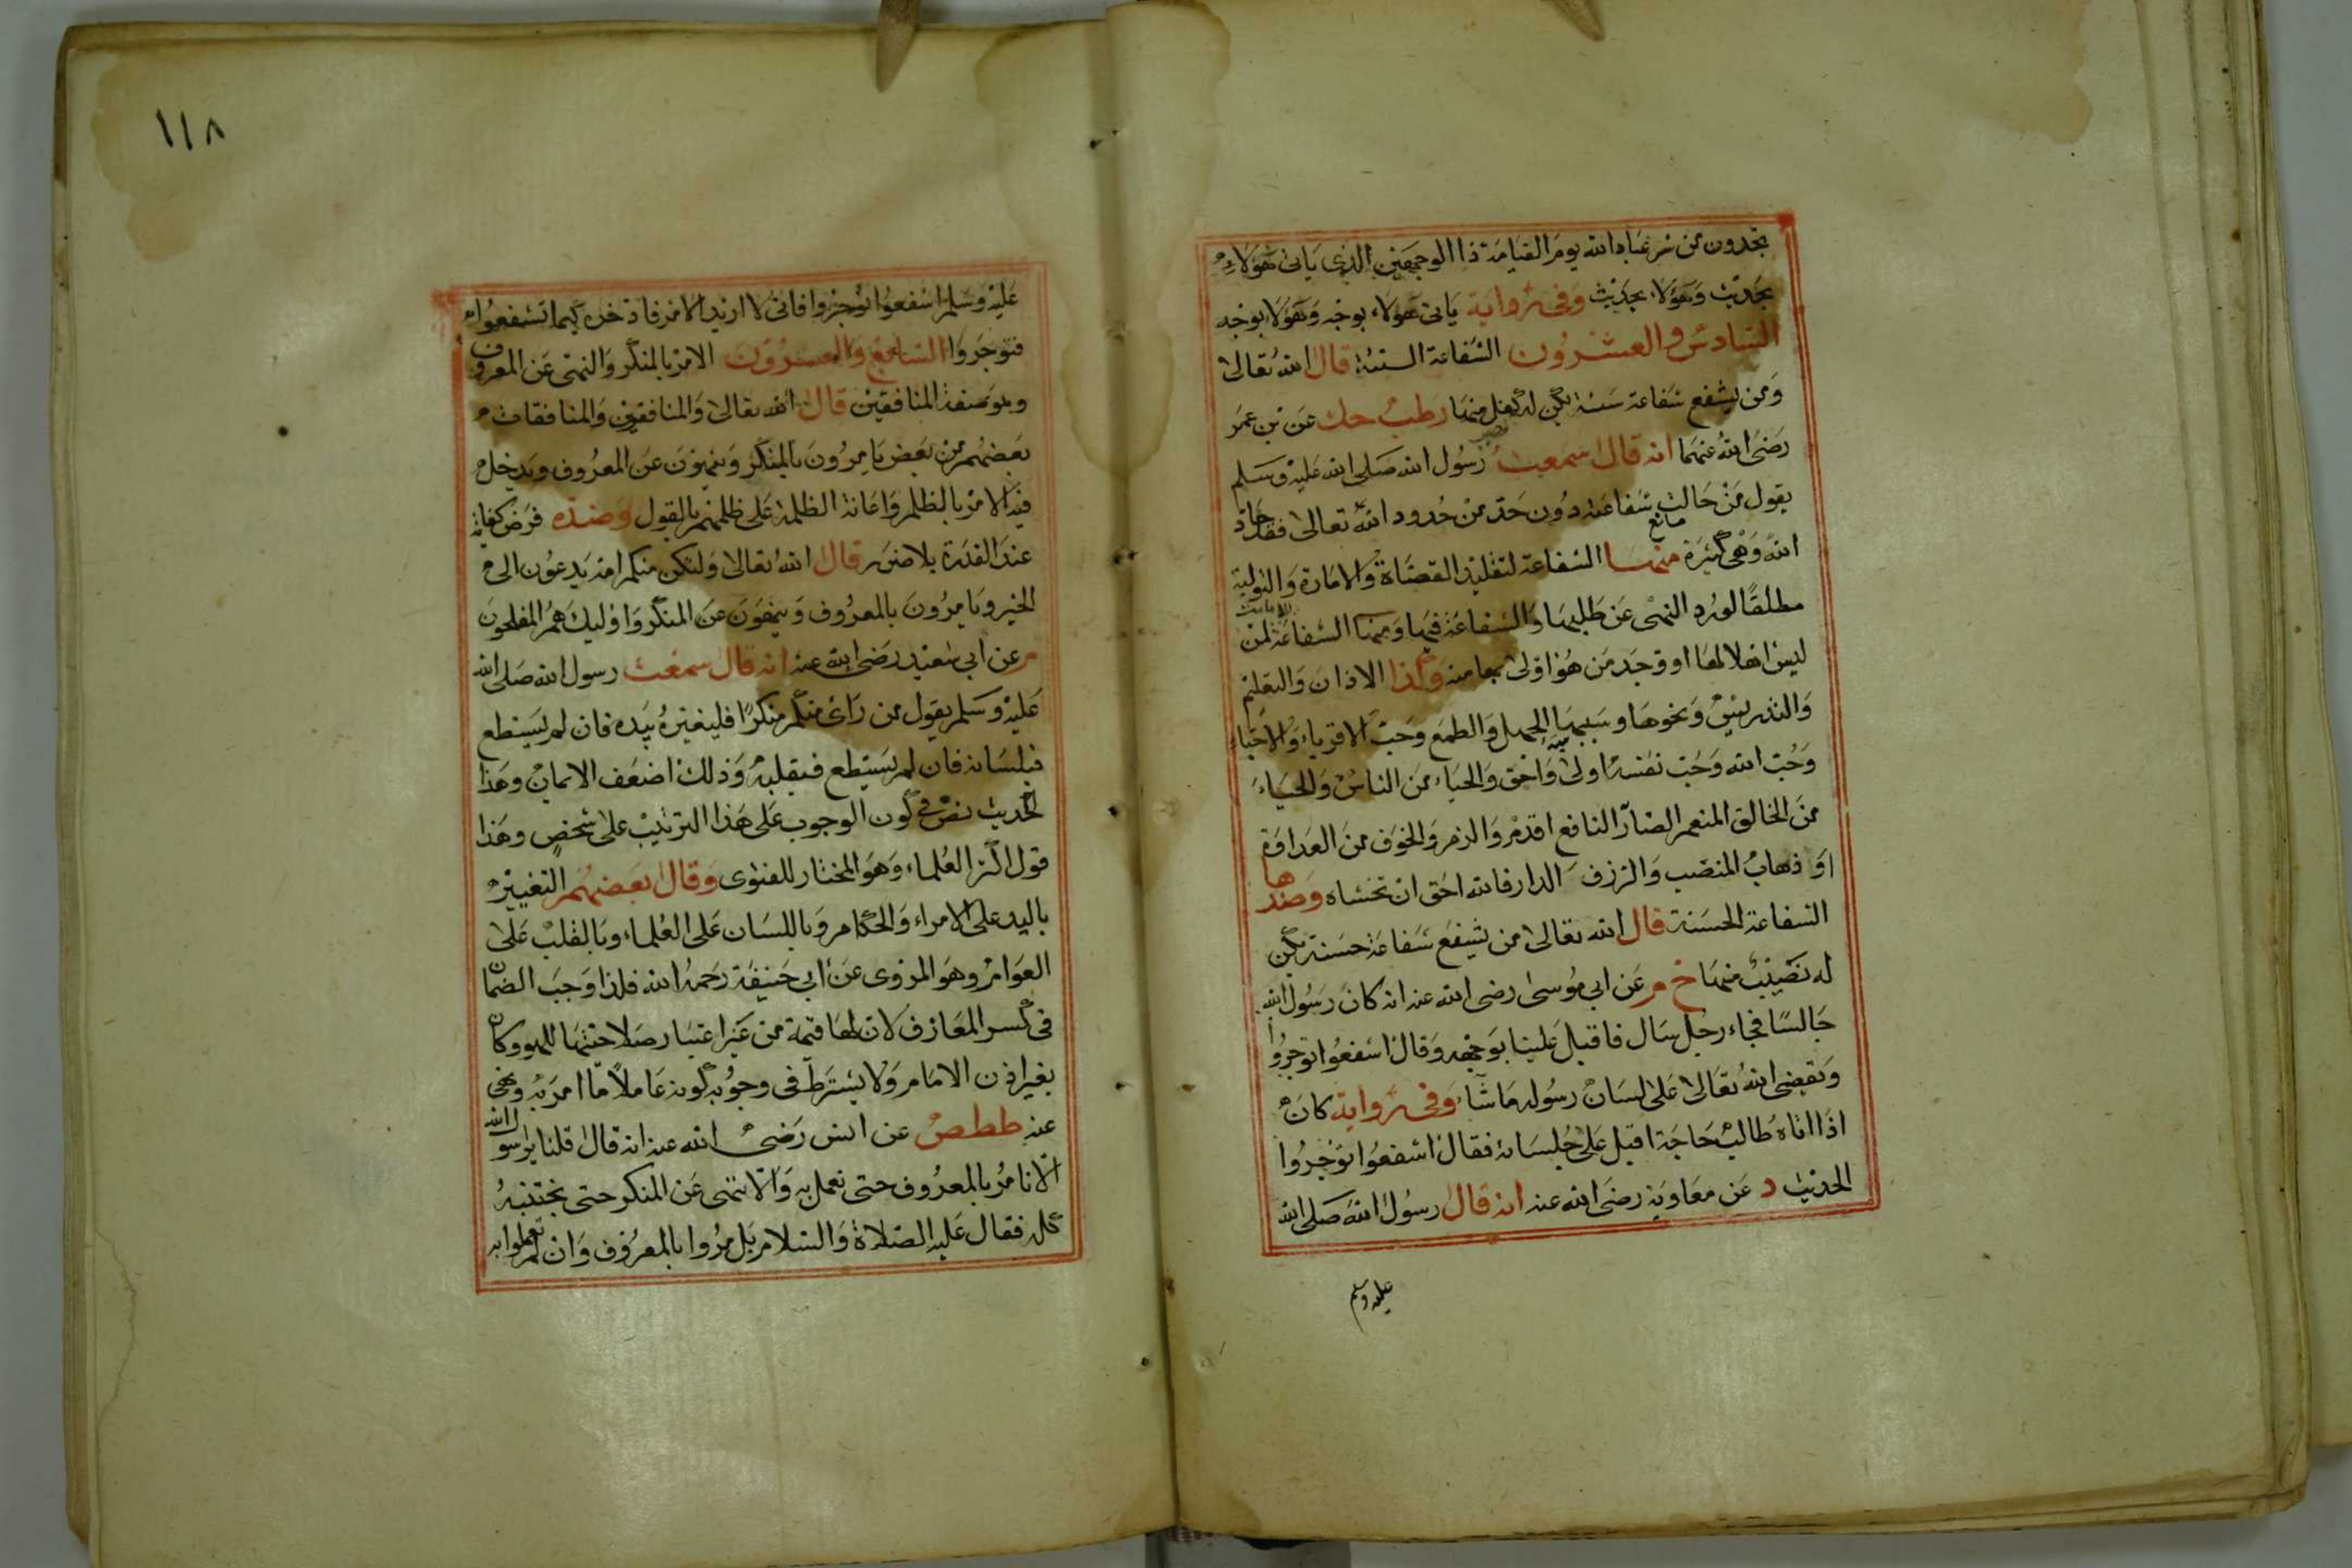 تجدون من شر عباد الله يوم القيامة ذا الوجهين الذي ياتى هؤلاء
بحديث وهؤلاء بحديث وفى رواية ياتى هؤلاء بوجه وهؤلا بوجه
السادس والعشرون الشفاعة السيئة قال الله تعالى
ومن يشفع شفاعة سيئة يكن له كفل منها طب حك عن بن عمر
نصيب
رضى الله عنهما انه قال سمعت رسول الله صلى الله عليه وسلم
يقول من حالت شفاعته دون حد من حدود الله تعالى فقد حاد
مانع
الله وهى كثيرة منها الشفاعة لتقليد القضاة والامارة والتولية
مطلقا لورد النهى عن طلبها والشفاعة فيها ومنها الشفاعة لمن
الامامت
ليس اهلا لها او وجد من هو اولى بها منه وكذا الاذان والتعليم
والتدريس ونحوها وسببها الجهل والطمع وحب الاقرباء والاحباء
وحب الله وحب نفسه اولى واحق والحياء من الناس والحياء
من الخالق المنعم الضار النافع اقدم والذم والخوف من العداوة
او ذهاب المنصب والرزق الدار فالله احق ان تخشاه وضدها
الشفاعة الحسنة قال الله تعالى من يشفع شفاعة حسنة يكن
له نصيب منها خ م عن ابى موسى رضى الله عنه انه كان رسول الله
جالسا فجاء رجل سال فاقبل علينا بوجهه وقال اشفعوا توجروا
ويقضى الله تعالى على لسان رسوله ما شاء وفى رواية كان
اذا اتاه طالب حاجة اقبل على جلسائه فقال اشفعوا توجروا
الحديث د عن معاوية رضى الله عنه انه قال رسول الله صلى الله
عليه وسلم
١١٨
عليه وسلم اشفعوا توجروا فانى لا اريد الامر فاوخره كيما تشفعوا
فتوجروا السابع والعشرون الامر بالمنكر والنهى عن المعروف
وهو صفة المنافقين قال الله تعالى والمنافقون والمنافقات
بعضهم من بعض يامرون بالمنكر وينهون عن المعروف ويدخل
فيه الامر بالظلم واعانة الظلمة على ظلمهم بالقول وضده فرض كفاية
عند القدرة بلا ضرر قال الله تعالى ولتكن منكم امة يدعون الى
الخير ويامرون بالمعروف وينهون عن المنكر واوليك هم المفلحون
م عن ابى سعيد رضى الله عنه انه قال سمعت رسول الله صلى الله
عليه وسلم يقول من راى منكم منكرا فليغيره بيده فان لم يستطع
فبلسانه فان لم يستطع فبقلبه وذلك اضعف الايمان وهذا
الحديث نص فى كون الوجوب على هذا الترتيب على شخص وهذا
قول اكثر العلماء وهو المختار للفتوى وقال بعضهم التغيير
باليد على الامراء والحكام وباللسان على العلماء وبالقلب على
العوام وهو المروى عن ابى حنيفة رحمه الله فلذا وجب الضمان
فى كسر المعازف لان لها قيمة من غير اعتبار صلاحيتها للهو وكان
بغير اذن الامام ولا يشترط فى وجوبه كونه عاملا ما امر به ونهى
عنه طط ص عن انس رضى الله عنه انه قال قلنا يا رسول الله
الا نامر بالمعروف حتى نعمل به والا ننهى عن المنكر حتى نجتنبه
كله فقال عليه الصلاة والسلام بل مروا بالمعروف وان لم تعملوا به